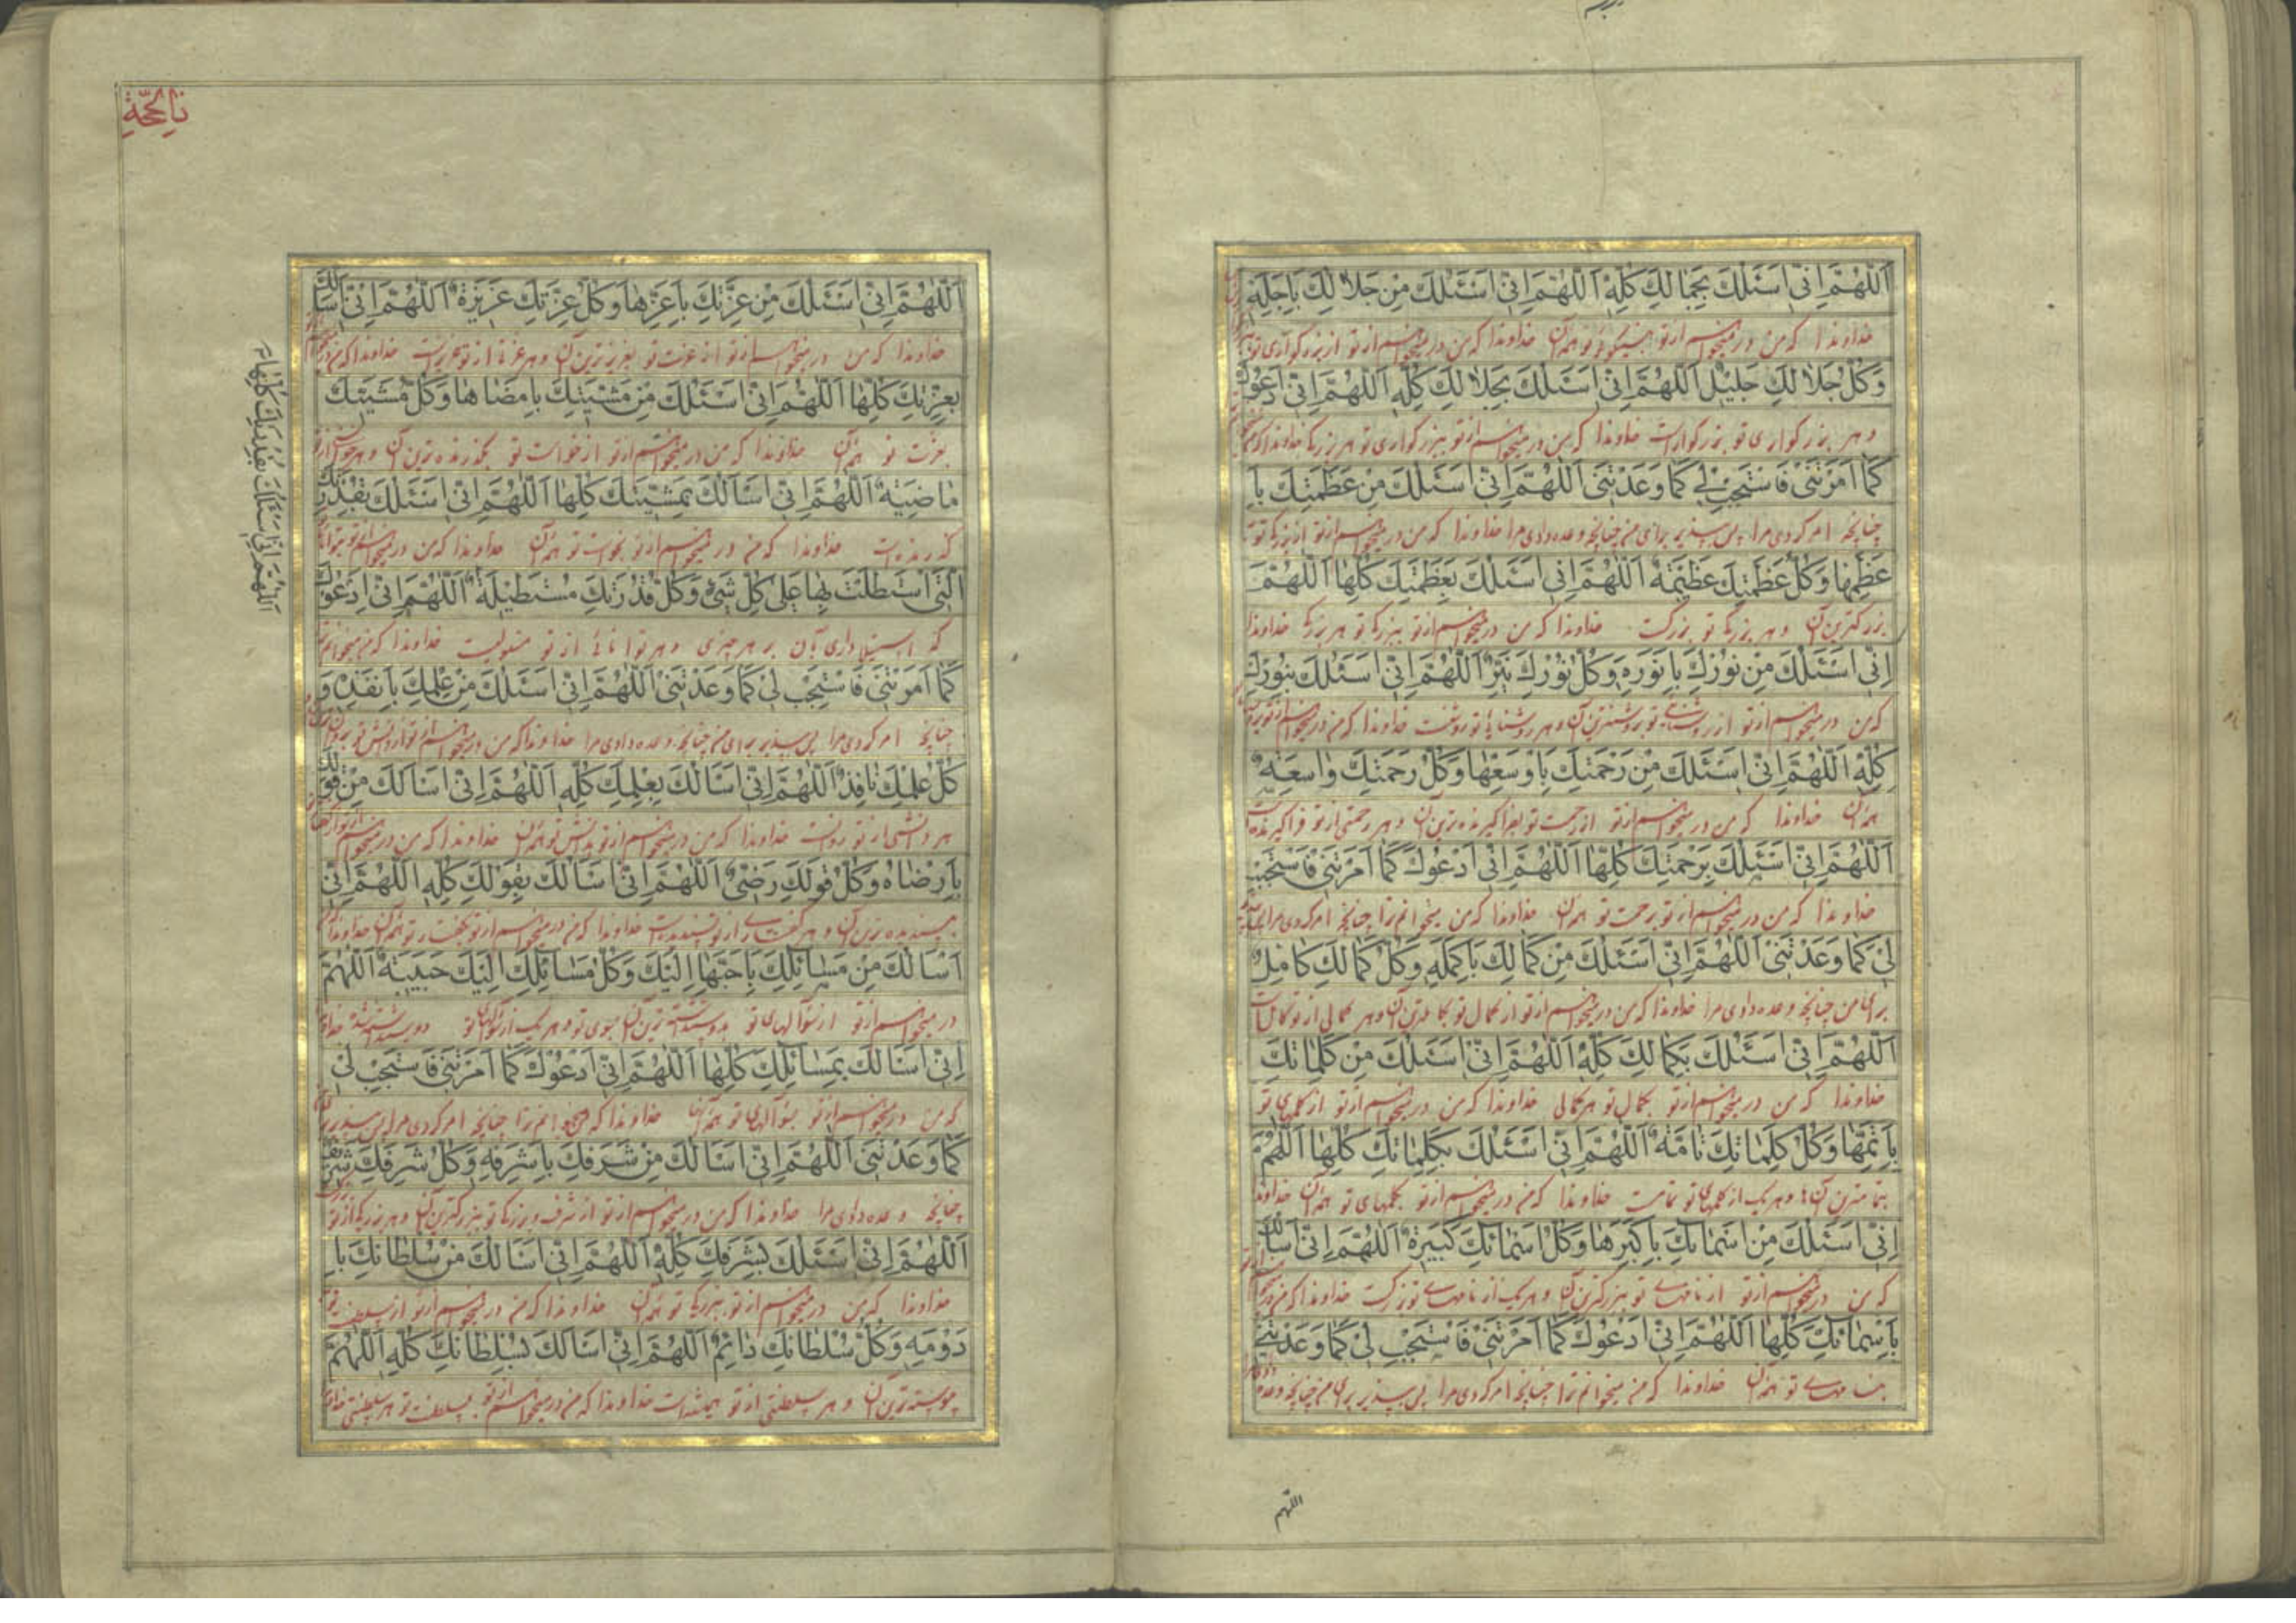 اَللّٰهُمَّ اِنّی اَسْئَلُكَ بِجَمالِكَ كُلِّهِ اَللّٰهُمَّ اِنّی اَسْئَلُكَ مِنْ جَلالِكَ بِاَجَلِّهِ
خداوندا که من در میخواهم از تو بنیکوئی تو همهٔ آن خداوندا که من در میخواهم از تو از بزرکواری تو
وَكُلُّ جَلالِكَ جَلیلٌ اَللّٰهُمَّ اِنّی اَسْئَلُكَ بِجَلالِكَ كُلِّهِ اَللّٰهُمَّ اِنّی اَدْعُوكَ
و هر بزرکواری تو بزرکوارست خداوندا که من در میخواهم از تو ببزرکواری تو خداوندا که من
كَما اَمَرْتَنی فَاسْتَجِبْ لی كَما وَعَدْتَنی اَللّٰهُمَّ اِنّی اَسْئَلُكَ مِنْ عَظَمَتِكَ بِاَ
چنانچه امر کردی مرا پس بپذیر برای من چنانچه وعده دادی مرا خداوندا که من در میخواهم از تو از بزرکی تو
عْظَمِها وَكُلُّ عَظَمَتِكَ عَظیمَةٌ اَللّٰهُمَّ اِنّی اَسْئَلُكَ بِعَظَمَتِكَ كُلِّها اَللّٰهُمَّ
بزرکترین آن و هر بزرکی تو بزرکست خداوندا که من در میخواهم از تو ببزرکی تو خداوندا
اِنّی اَسْئَلُكَ مِنْ نُورِكَ بِاَنْوَرِهِ وَكُلُّ نُورِكَ نَیِّرٌ اَللّٰهُمَّ اِنّی اَسْئَلُكَ بِنُورِكَ
که من در میخواهم از تو از روشنائی تو بروشنترین آن و هر روشنائی تو روشنست خداوندا که من در میخواهم از تو
كُلِّهِ اَللّٰهُمَّ اِنّی اَسْئَلُكَ مِنْ رَحْمَتِكَ بِاَوْسَعِها وَكُلُّ رَحْمَتِكَ واسِعَةٌ
همهٔ آن خداوندا که من در میخواهم از تو از رحمت تو بفراکیرنده‌ترین آن و هر رحمتی از تو فراکیرنده است
اَللّٰهُمَّ اِنّی اَسْئَلُكَ بِرَحْمَتِكَ كُلِّها اَللّٰهُمَّ اِنّی اَدْعُوكَ كَما اَمَرْتَنی فَاسْتَجِبْ
خداوندا که من در میخواهم از تو برحمت تو همهٔ آن خداوندا که من میخوانم ترا چنانچه امر کردی مرا
لی كَما وَعَدْتَنی اَللّٰهُمَّ اِنّی اَسْئَلُكَ مِنْ كَمالِكَ بِاَكْمَلِهِ وَكُلُّ كَمالِكَ كامِلٌ
برای من چنانچه وعده دادی مرا خداوندا که من در میخواهم از تو از کمال تو بکاملترین آن و هر کمالی از تو کاملست
اَللّٰهُمَّ اِنّی اَسْئَلُكَ بِكَمالِكَ كُلِّهِ اَللّٰهُمَّ اِنّی اَسْئَلُكَ مِنْ كَلِماتِكَ
خداوندا که من در میخواهم از تو بکمال تو هر کمالی خداوندا که من در میخواهم از تو از کلمهای تو
بِاَتَمِّها وَكُلُّ كَلِماتِكَ تامَّةٌ اَللّٰهُمَّ اِنّی اَسْئَلُكَ بِكَلِماتِكَ كُلِّها اَللّٰهُمَّ
بتمامترین آنها و هر یک از کلمهای تو تمامست خداوندا که من در میخواهم از تو بکلمهای تو همهٔ آن خداوندا
اِنّی اَسْئَلُكَ مِنْ اَسْمائِكَ بِاَكْبَرِها وَكُلُّ اَسْمائِكَ كَبیرَةٌ اَللّٰهُمَّ اِنّی اَسْاَلُكَ
که من در میخواهم از تو از نامهای تو ببزرکترین آن و هر یک از نامهای تو بزرکست خداوندا که من
بِاَسْمائِكَ كُلِّها اَللّٰهُمَّ اِنّی اَدْعُوكَ كَما اَمَرْتَنی فَاسْتَجِبْ لی كَما وَعَدْتَنی
بنامهای تو همهٔ آن خداوندا که من میخوانم ترا چنانچه امر کردی مرا پس بپذیر برای من چنانچه وعده
اللّهم
اَللّٰهُمَّ اِنّی اَسْئَلُكَ مِنْ عِزَّتِكَ بِاَعَزِّها وَكُلُّ عِزَّتِكَ عَزیزَةٌ اَللّٰهُمَّ اِنّی اَسْاَلُكَ
خداوندا که من در میخواهم از تو از عزت تو بعزیزترین آن و هر عزتی از تو عزیزست خداوندا که من
بِعِزَّتِكَ كُلِّها اَللّٰهُمَّ اِنّی اَسْئَلُكَ مِنْ مَشِیَّتِكَ بِاَمْضاها وَكُلُّ مَشِیَّتِكَ
بعزت تو همهٔ آن خداوندا که من در میخواهم از تو از خواست تو بکذرنده‌ترین آن و هر
ماضِیَةٌ اَللّٰهُمَّ اِنّی اَسْاَلُكَ بِمَشِیَّتِكَ كُلِّها اَللّٰهُمَّ اِنّی اَسْئَلُكَ بِقُدْرَتِكَ
کذرنده است خداوندا که من در میخواهم از تو بخواست تو همهٔ آن خداوندا که من در میخواهم از تو
الَّتی اسْتَطَلْتَ بِها عَلی كُلِّ شَیْءٍ وَكُلُّ قُدْرَتِكَ مُسْتَطیلَةٌ اَللّٰهُمَّ اِنّی اَدْعُوكَ
که استیلا داری بآن بر هر چیزی و هر توانائی از تو مستولیست خداوندا که من میخوانم
كَما اَمَرْتَنی فَاسْتَجِبْ لی كَما وَعَدْتَنی اَللّٰهُمَّ اِنّی اَسْئَلُكَ مِنْ عِلْمِكَ بِاَنْفَذِهِ وَ
چنانچه امر کردی مرا پس بپذیر برای من چنانچه وعده دادی مرا خداوندا که من در میخواهم از تو از دانش تو
كُلُّ عِلْمِكَ نافِذٌ اَللّٰهُمَّ اِنّی اَسْاَلُكَ بِعِلْمِكَ كُلِّهِ اَللّٰهُمَّ اِنّی اَسْاَلُكَ مِنْ قَوْلِكَ
هر دانشی از تو روانست خداوندا که من در میخواهم از تو بدانش تو همهٔ آن خداوندا که من در میخواهم
بِاَرْضاهُ وَكُلُّ قَوْلِكَ رَضِیٌّ اَللّٰهُمَّ اِنّی اَسْاَلُكَ بِقَوْلِكَ كُلِّهِ اَللّٰهُمَّ اِنّی
بپسندیده‌ترین آن و هر کفتاری از تو پسندیده است خداوندا که من در میخواهم از تو بکفتار تو همهٔ آن خداوندا
اَسْاَلُكَ مِنْ مَسائِلِكَ بِاَحَبِّها اِلَیْكَ وَكُلُّ مَسائِلِكَ اِلَیْكَ حَبیبَةٌ اَللّٰهُمَّ
در میخواهم از تو از سئوالهای تو بدوست داشته‌ترین آن بسوی تو و هر یک از سئوالهای تو
اِنّی اَسْاَلُكَ بِمَسائِلِكَ كُلِّها اَللّٰهُمَّ اِنّی اَدْعُوكَ كَما اَمَرْتَنی فَاسْتَجِبْ لی
که من در میخواهم از تو بسئوالهای تو همهٔ آنها خداوندا که من میخوانم ترا چنانچه امر کردی مرا پس بپذیر
كَما وَعَدْتَنی اَللّٰهُمَّ اِنّی اَسْاَلُكَ مِنْ شَرَفِكَ بِاَشْرَفِهِ وَكُلُّ شَرَفِكَ شَریفٌ
چنانچه وعده دادی مرا خداوندا که من در میخواهم از تو از شرف و بزرکی تو ببزرکترین آن و هر بزرکی از تو
اَللّٰهُمَّ اِنّی اَسْئَلُكَ بِشَرَفِكَ كُلِّهِ اَللّٰهُمَّ اِنّی اَسْاَلُكَ مِنْ سُلْطانِكَ بِاَ
خداوندا که من در میخواهم از تو ببزرکی تو همهٔ آن خداوندا که من در میخواهم از تو از سلطنت تو
دْوَمِهِ وَكُلُّ سُلْطانِكَ دائِمٌ اَللّٰهُمَّ اِنّی اَسْاَلُكَ بِسُلْطانِكَ كُلِّهِ اَللّٰهُمَّ
پیوسته‌ترین آن و هر سلطنتی از تو همیشه است خداوندا که من در میخواهم از تو بسلطنت تو هر سلطنتی
اَللّٰهُمَّ اِنّی اَسْئَلُكَ بِقُدْرَتِكَ كُلِّها